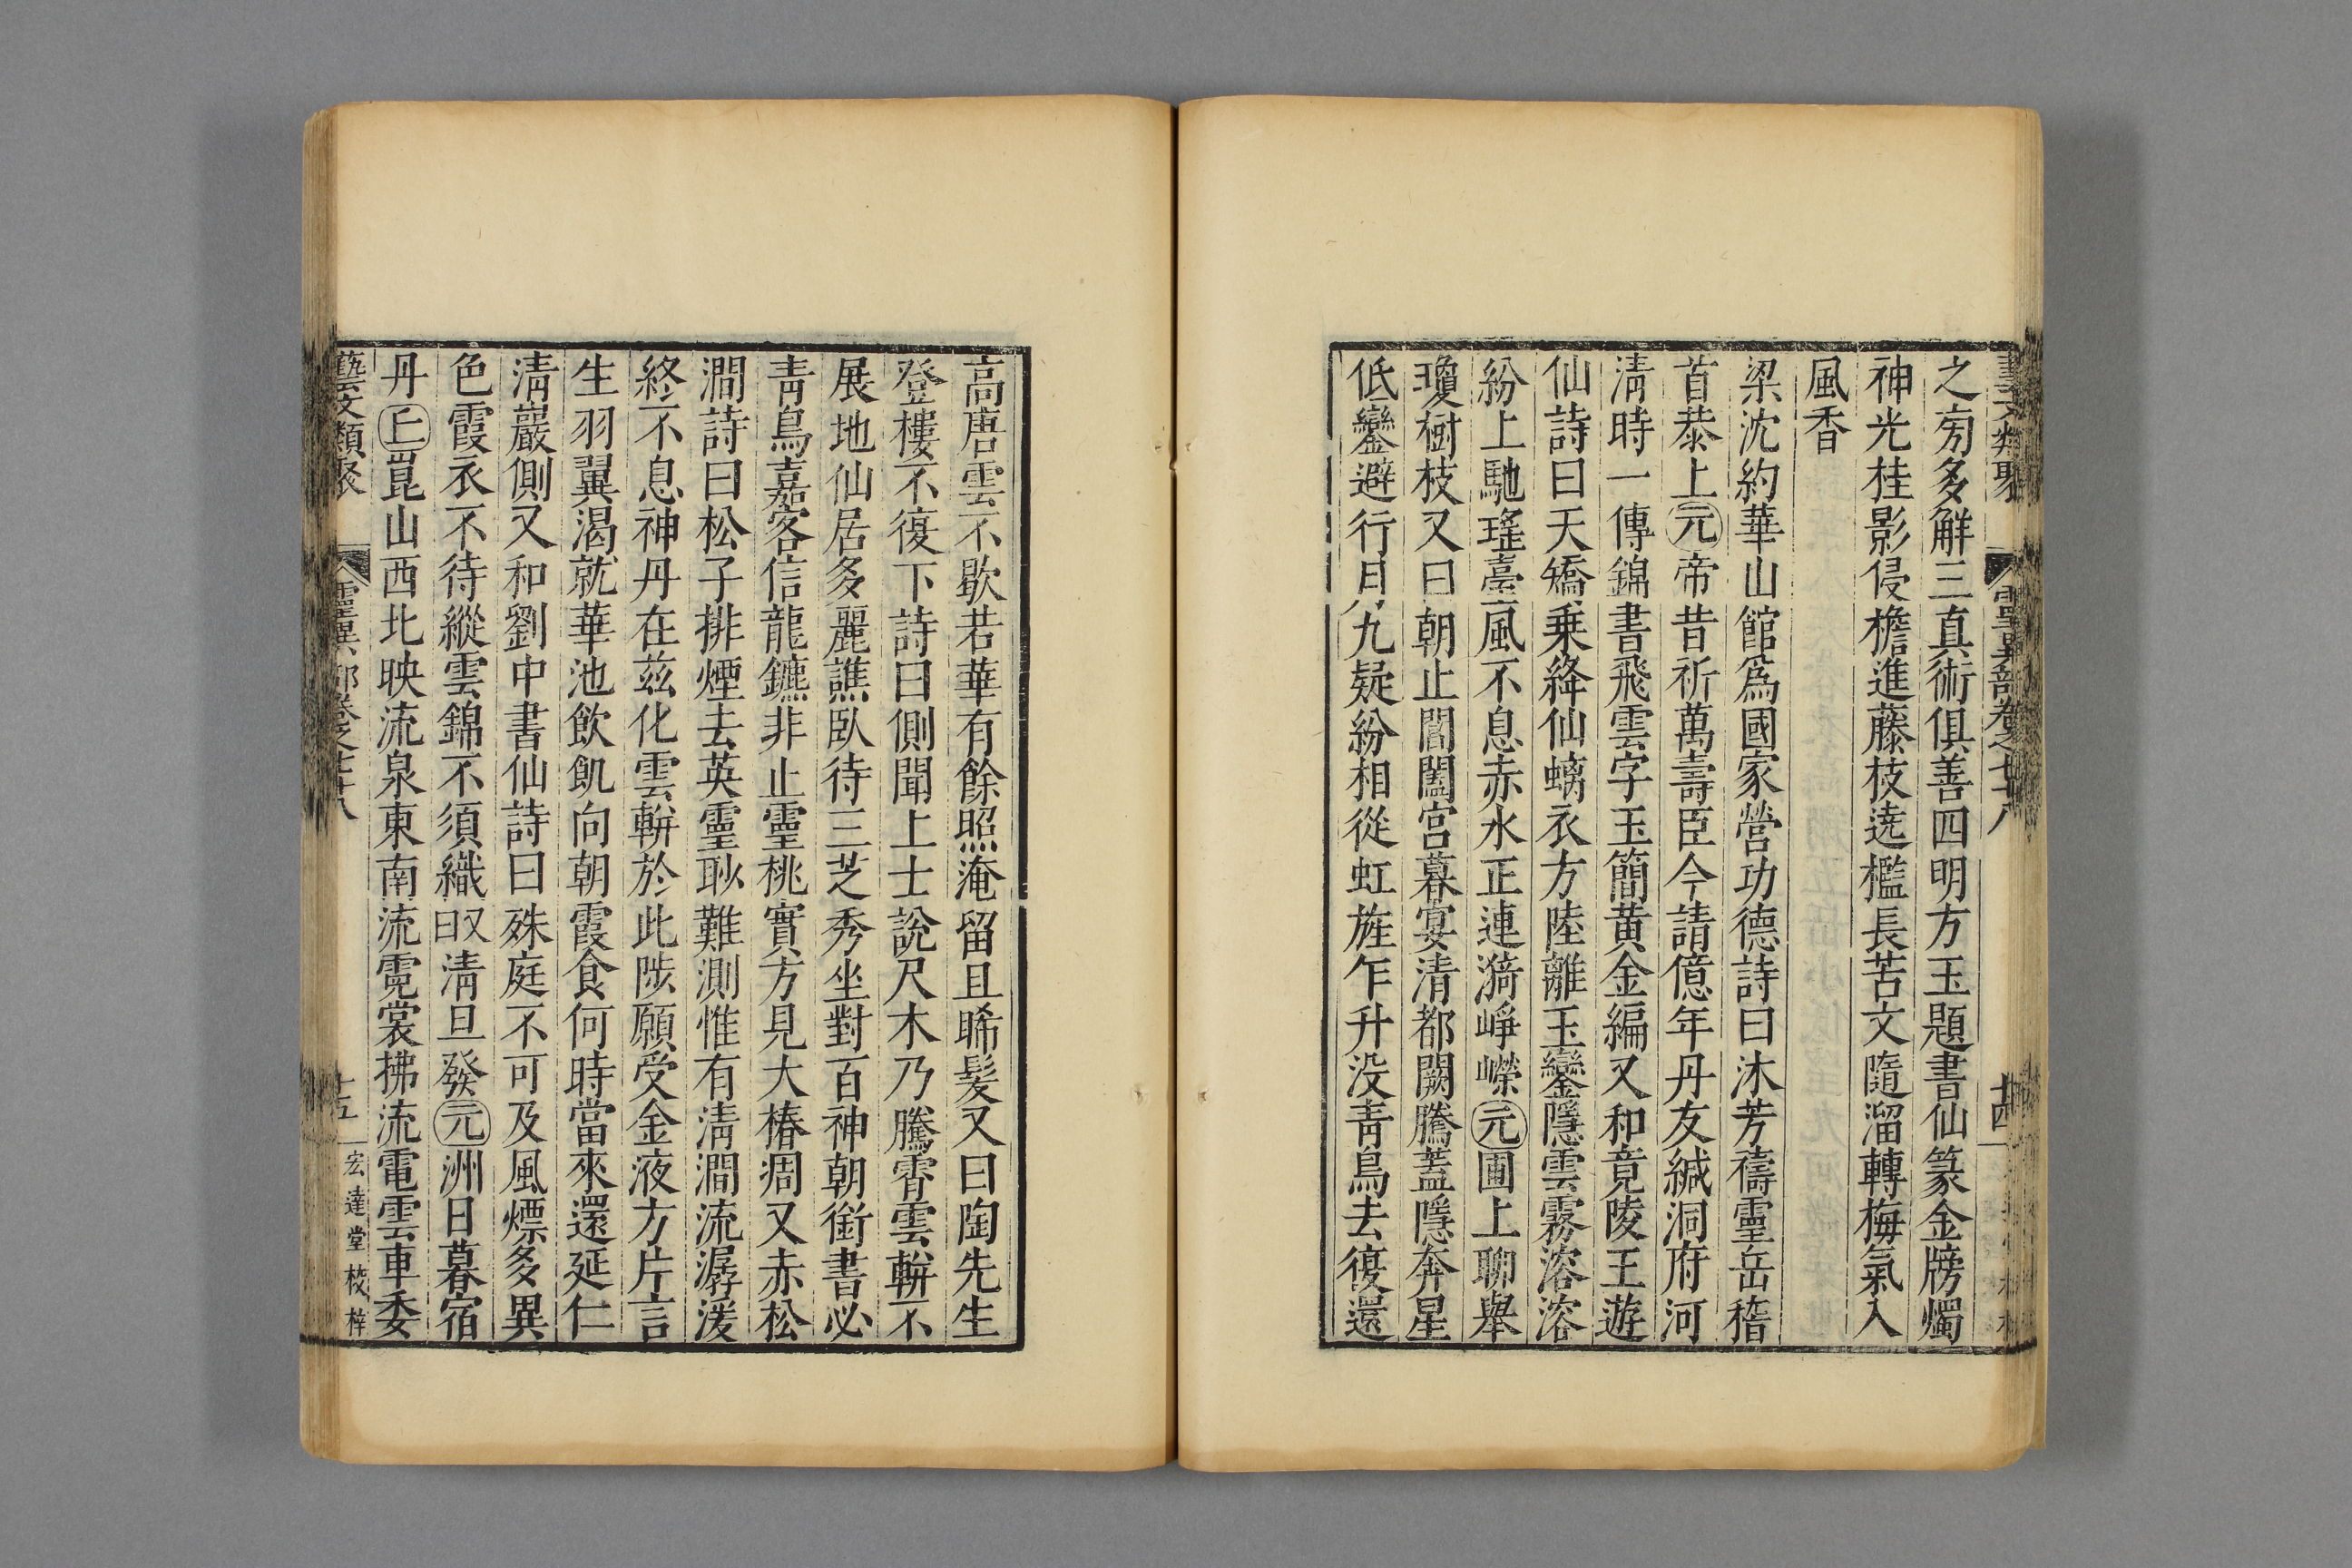 藝文類聚 靈異部卷之七十八 十四
之䓑多解三真術俱善四明方玉題書仙篆金牓燭
神光桂影侵檐進藤枝遶檻長苔文隨溜轉梅氣入
風香
梁沈約華山館爲國家營功德詩曰沐芳禱靈岳稽
首恭上元帝昔祈萬壽臣今請億年丹友緘洞府河
淸時一傳錦書飛雲字玉簡黃金編又和竟陵王遊
仙詩曰天矯乗絳仙螭衣方陸離玉鑾隱雲霧溶溶
紛上馳瑤臺風不息赤水正連漪崢嶸元圃上聊舉
瓊樹枝又曰朝止閶闔宮暮宴清都闕騰蓋隱奔星
低鑾避行月九疑紛相從虹旌乍升没靑鳥去復還
高唐雲不歇若華有餘照淹留且晞髮又曰陶先生
登樓不復下詩曰側聞上士說尺木乃騰霄雲軿不
展地仙居多麗譙臥待三芝秀坐對百神朝銜書必
靑鳥嘉客信龍鑣非止靈桃實方見大椿凋又赤松
澗詩曰松子排煙去英靈眇難測惟有淸澗流潺湲
終不息神丹在茲化雲軿於此陟願受金液方片言
生羽翼渴就華池飲飢向朝霞食何時當來還延仁
淸巖側又和劉中書仙詩曰殊庭不可及風熛多異
色霞衣不待縱雲錦不須織又曰淸旦發元洲日暮宿
丹丘崑山西北映流泉東南流霓裳拂流電雲車委
藝文類聚 靈異部卷之七十八 十五 宏達堂校梓